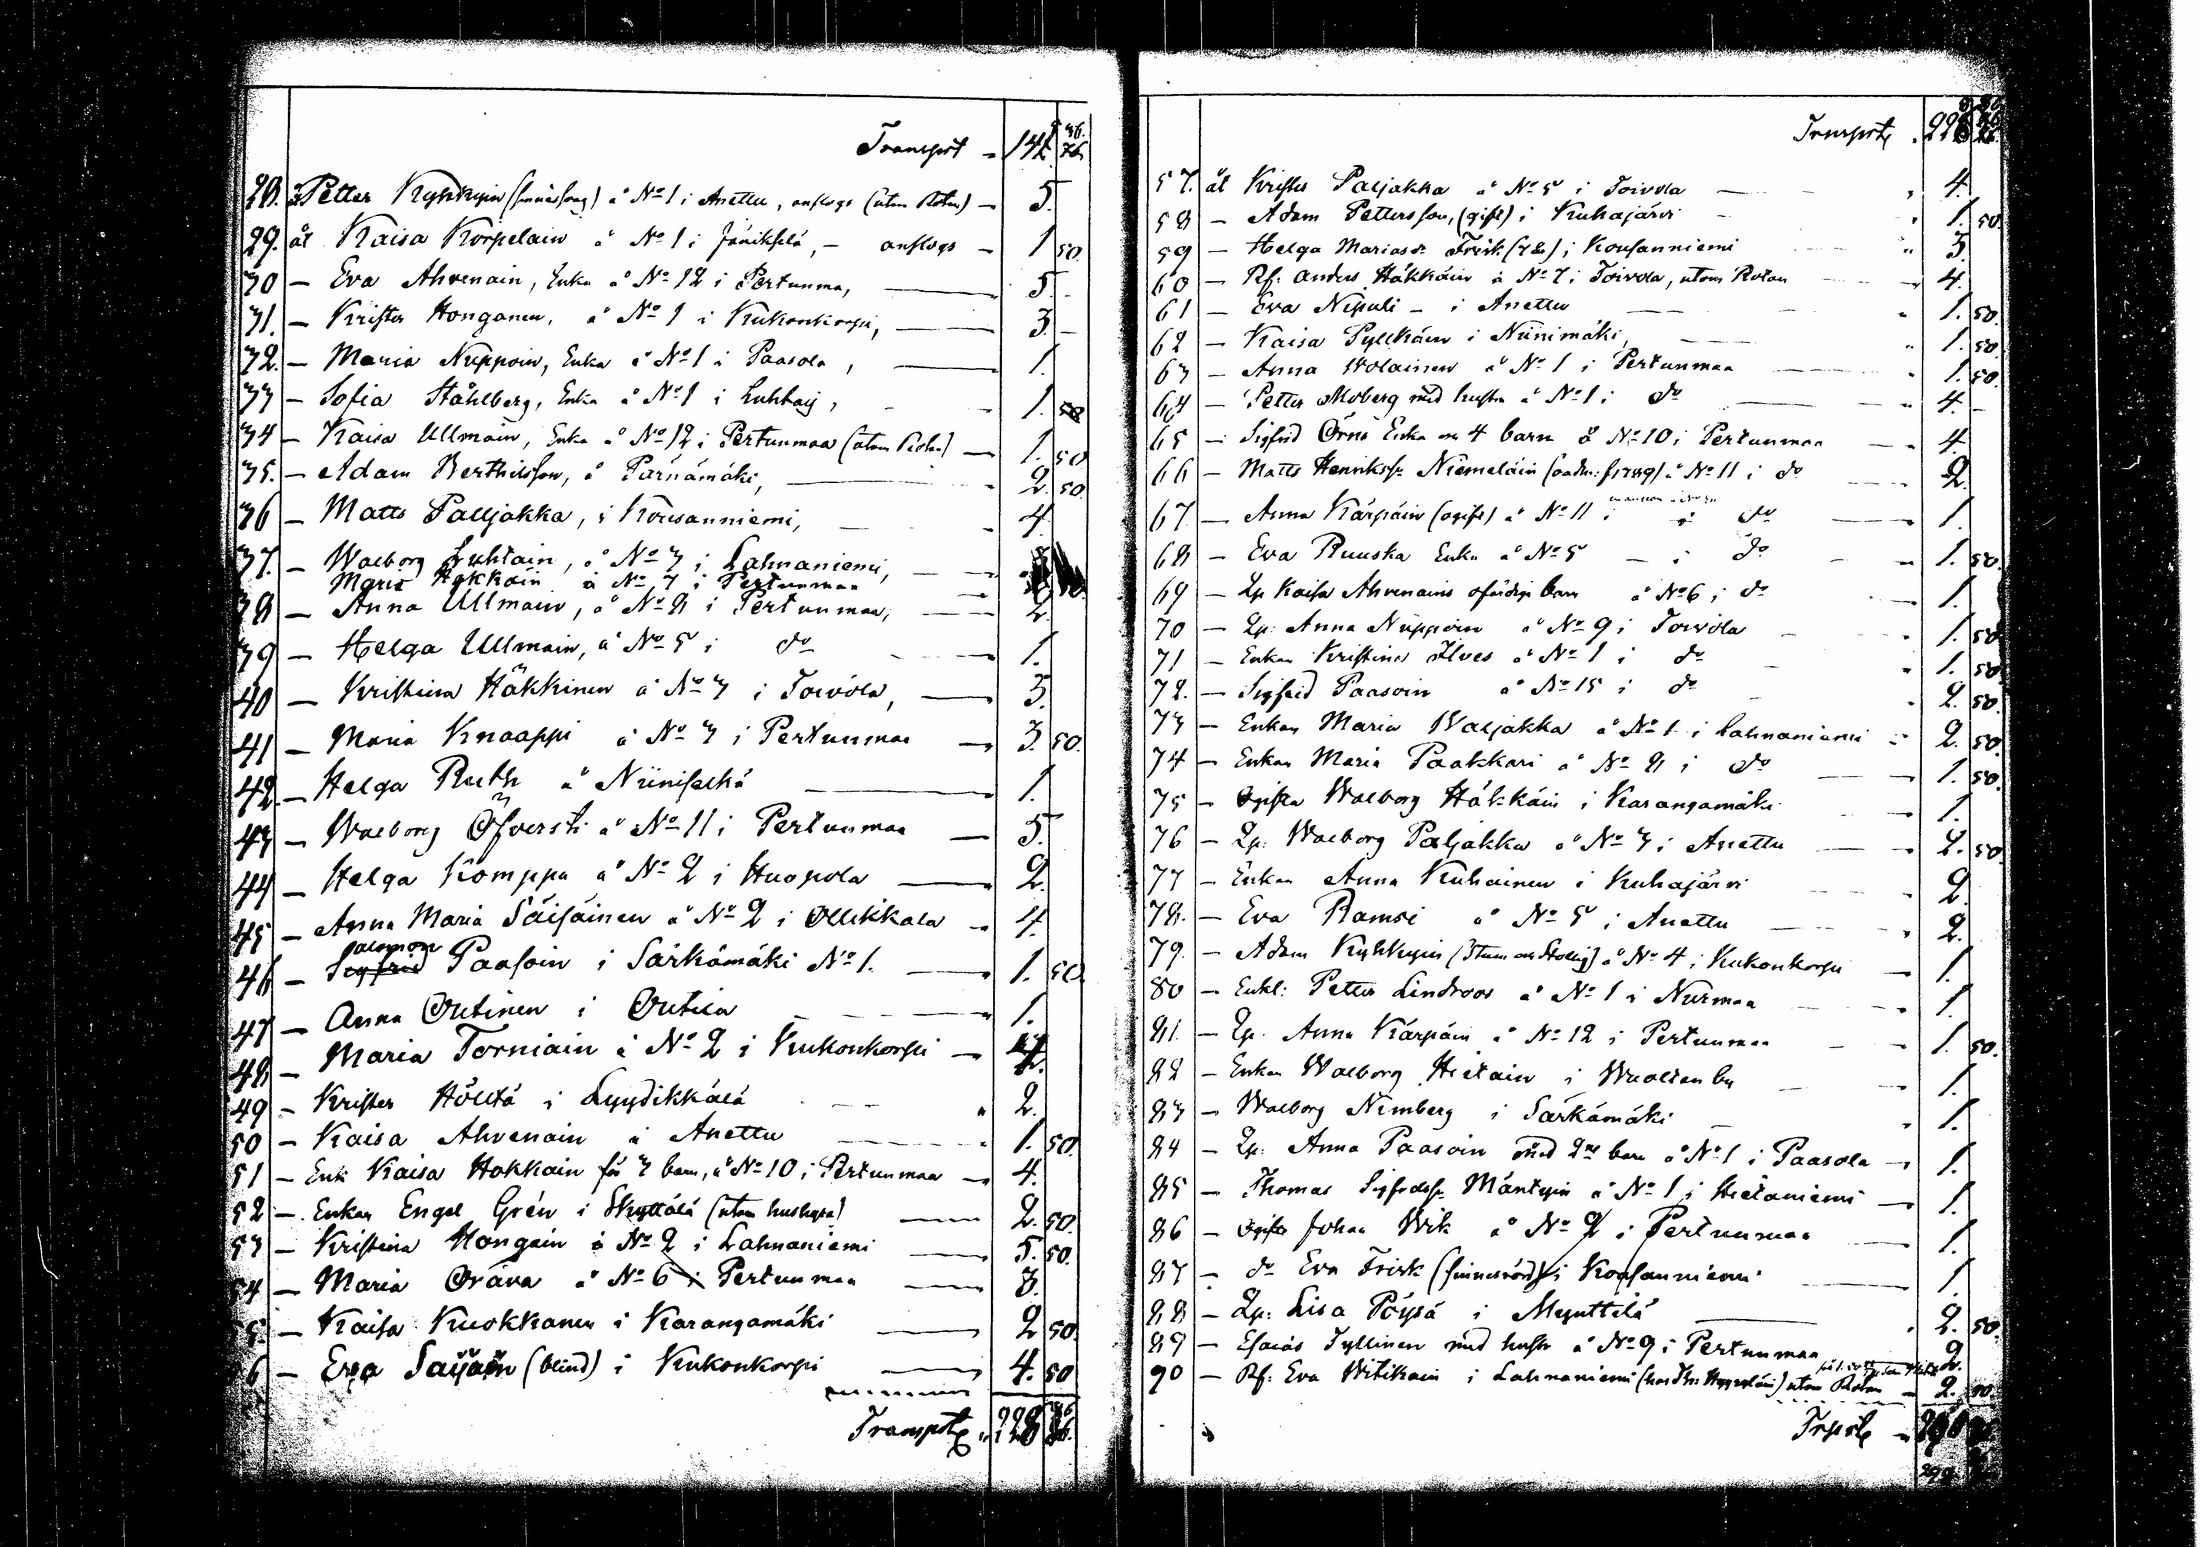 Transport - 142
28. åt Petter Kyhkyin (sinnessvag) å No 1 i Anettu, anslogs (utom Rotan) - 5.
29. åt Kaisa Korpelain å No 1 i Jänikselä, - anslogs - 1 50.
30 - Eva Ahvenain, Enka å No 12 i Pertunma, 5.
31. - Krister Honganen, å No 1 i Kukonkorpi, 3. -
32. - Maria Nuppoin, Enka å No 1 i Paasola, 1.
33 - Sofia Ståhlberg, Enka å No 1 i 1. 50
34 - Kaisa Ullmain, Enka å No 12 i Pertunmaa (utom Rotan) - 1. 50
35. - Adam Berthilsson, å Pärnämäki, 2. 50.
36 - Matts Palljakka, i Kousanniemi, 4.
37. - Walborg Luhtain, å No 3 i Lahnaniemi,
Maria Hokkain å No 7 i Pertunmaa
38 - Anna Ullmain, å No 8 i Pertunmaa, 2.
39 - Helga Ullmain, å No 5 i do 1.
40 - Kristina Häkkinen å No 3 i Toivola, 3.
41 - Maria Knaappi å No 3 i Pertunmaa 3. 50.
42 - Helga Ruth å Niiniselkä 1.
43 - Walborg Öfversti å No 11 i Pertunmaa 5.
44 - Helga Komppa å No 2 i Huopola 2.
45 - Anna Maria Säisäinen å No 2 i Ollikkala 4.
Salomon
46 - Sigfrid Paasoin i Särkämäki No 1. 1. 50
47 - Anna Outinen i Outila 1.
48 - Maria Torniain å No 2 i Kukonkorpi
49 - Krister Hölttä i Lyydikkälä 2.
50 - Kaisa Ahvenain å Anettu 1. 50.
51 - Enk Kaisa Hokkain för 3 barn, å No 10 i Pertunmaa 4.
52 - Enkan Engel Grén i Skyttälä (utom husbyra) 2. 50.
53 - Kristina Hongain å No 2 i Lahnaniemi 5. 50.
54 - Maria Orava å No 6 i Pertunmaa 3.
5. - Kaisa Kuokkanen i Karangamäki 2 50.
6 - Eva Säisäin (blind) i Kukonkorpi 4. 50
Transport 228
Transport 228
57. åt Krister Paljakka å No 5 i Toivola 4.
58 - Adam Pettersson, (gift) i Kuhajärvi 1. 50.
59 - Helga Mariasdr Frisk i Kousanniemi 3.
60 - Rf: Anders Häkkäin å No 7 i Toivola, utom Rotan 4.
61 - Eva Nipuli - i Anettu 1. 50.
62 - Kaisa Pyllkäin i Niinimäki, 1. 50.
63 - Anna Wolainen å No 1 i Pertunmaa 1. 50.
64 - Petter Moberg med hustru å No 1 i do 4. -
65 - Sigfrid Örns Enka m 4 barn å No 10 i Pertunmaa 4.
66 - Matts Henrikss. Niemeläin å No 11 i do 2.
67 - Anna Kärpäin (ogift) å No 11 i do 1.
68 - Eva Ruuska Enka å No 5 - i do 1. 50.
69 - Qp Kaisa Ahvenains ofärdiga barn å No 6 i do 1.
70 - Qp: Anna Nuppoin å No 9 i Toivola 1. 50.
71 - Enkan Kristina Ilves å No 1 i do 1. 50.
72. - Sigfrid Paasoin å No 15 i do 2. 50.
73 - Enkan Maria Waljakka å No 1 i Lahnaniemi 2. 50.
74 - Enkan Maria Paakkari å No 8 i do 1. 50.
75 - Ogifta Walborg Häkkäin i Karangamäki 1.
76 - Qp: Walborg Paljakka å No 3 i Anettu 2. 50.
77 - Enkan Anna Kuhainen i Kuhajärvi 2.
78. - Eva Ramsi å No 5 i Anettu 2.
79. - Adam Kyhkyin å No 4 i Kukonkorpi 1.
80 - Enkl: Petter Lindroos å No 1 i Nurmaa 1.
81. - Qp. Anna Kärpäin å No 12 i Pertunmaa 1. 50.
82 - Enkan Walborg Hietain i Waolan by 1.
83 - Walborg Nimberg i Särkämäki 1.
84 - Qp: Anna Paasoin med 2ne barn å No 1 i Paasola 1.
85 - Thomas Sigfredss. Mäntyin å No 1 i Hietaniemi 1.
86 - Ogifte Johan Wik å No 2 i Pertunmaa 1.
87 - do Eva Frisk i Kousanniemi 1.
88 - Qp: Lisa Pöysä i Mynttilä 2. 50.
89 - Esaias Tyllinen med hustru å No 9 i Pertunmaa 2.
90 - Rf: Eva Witikain i Lahnaniemi utom Rotan 2. 50
Trpst